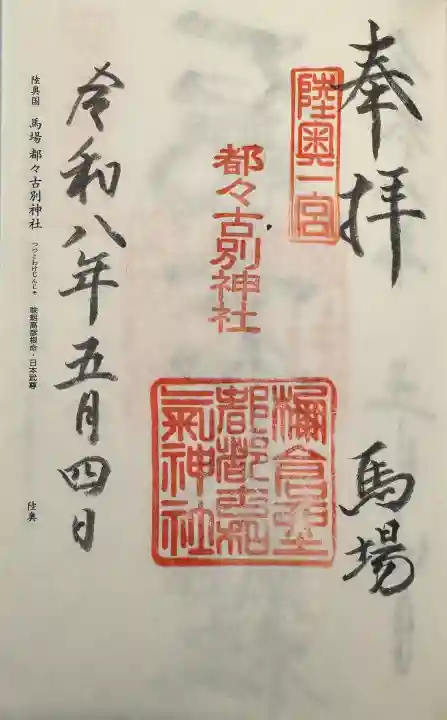 奉拝
馬場
陸奥一宮
都々古別神社
令和八年五月四日
陸奥国 馬場 都々古別神社 つつこわけじんじゃ 味耜高彦根命・日本武尊
陸奥